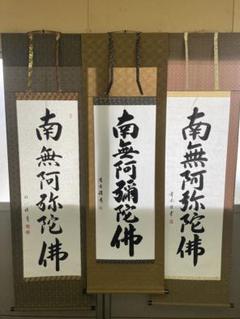 南無阿弥陀佛
南無阿彌陀佛
南無阿弥陀佛